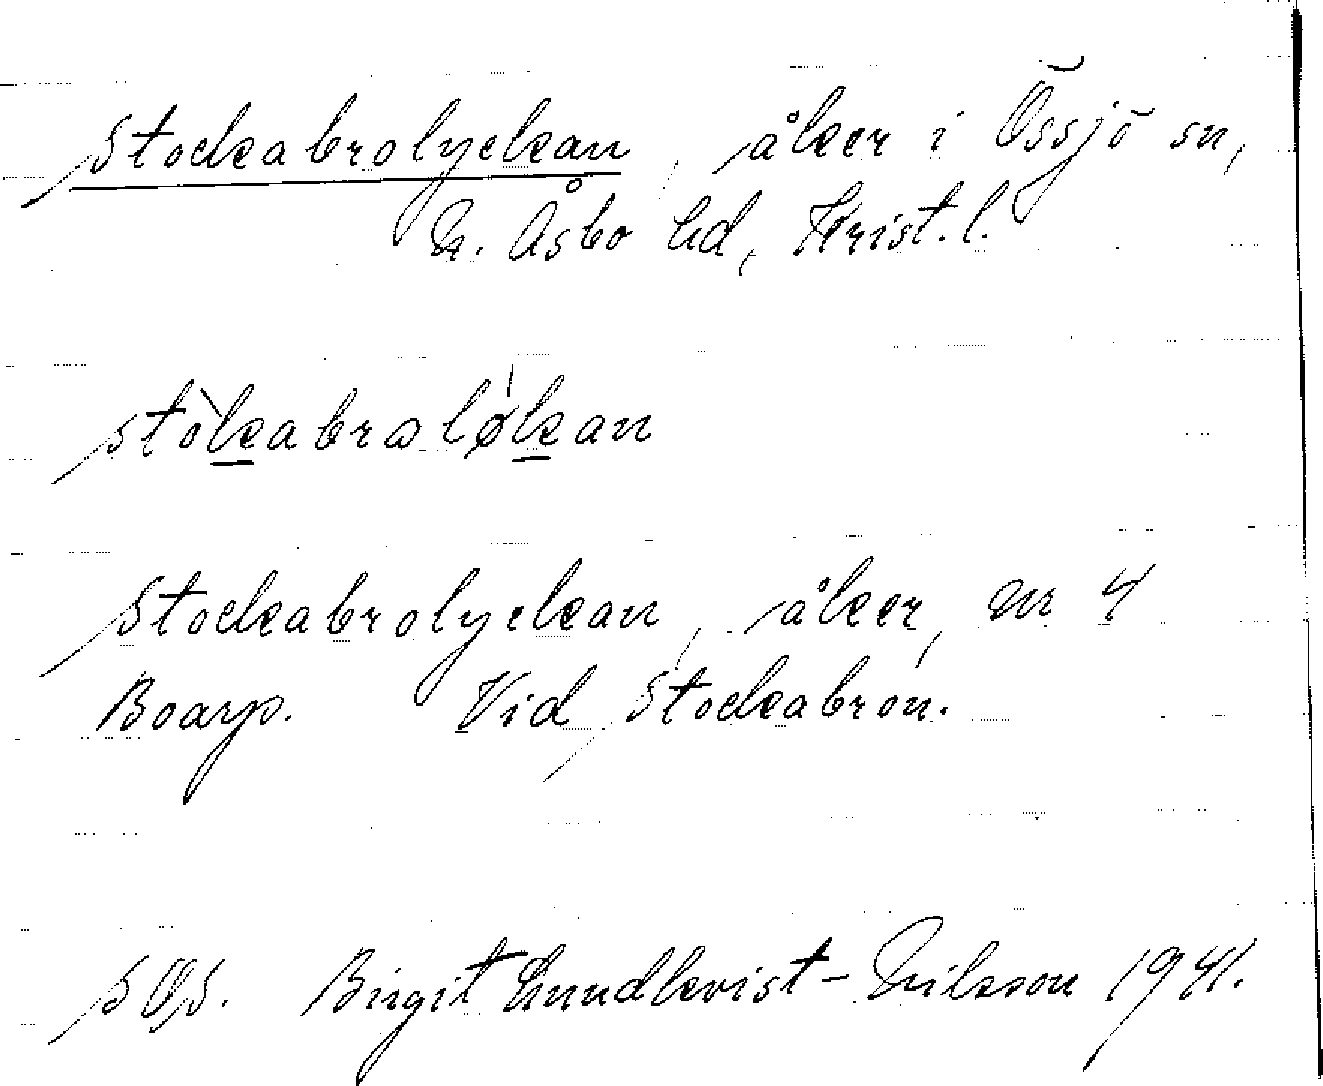 Stockabrolyckan, åker i Össjö sn,
N. Åsbo hd, Krist. l.
stòkabraløkan
Stockabrolyckan, åker, nr 4
Boarp. Vid Stockabron.
SOS. Birgit Lundkvist-Nilsson 1941.